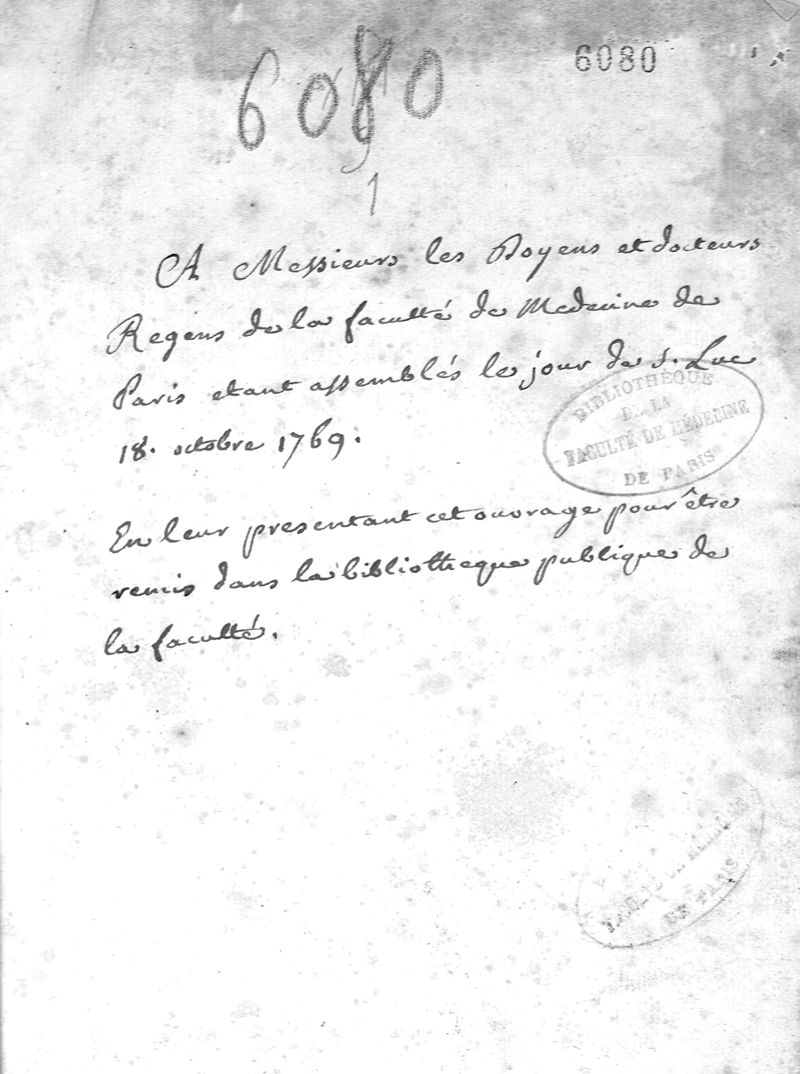 6080
6080
1
A Messieurs les Doyens et docteurs
Regens de la faculté de Medecine de
Paris etant assemblés le jour de s. Luc
18. octobre 1769.
BIBLIOTHÈQUE
DE LA
FACULTÉ DE MÉDECINE
DE PARIS
En leur presentant cet ouvrage pour être
remis dans la bibliotheque publique de
la faculté.
DE PARIS